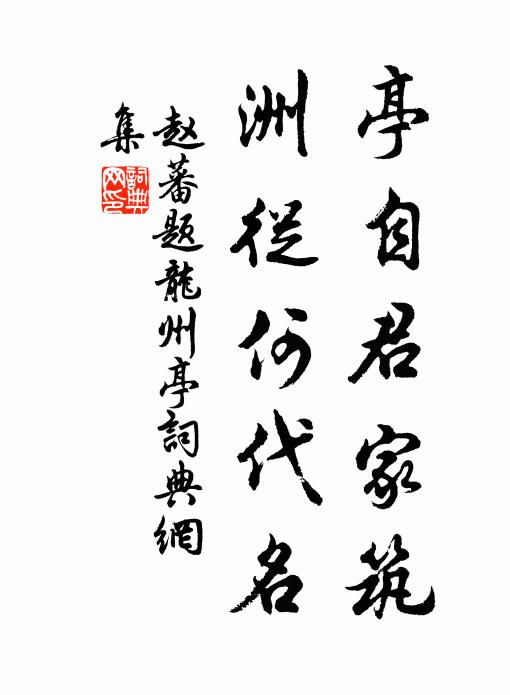 亭自君家筑
洲從何代名
赵蕃题龍州亭詞典網
集
詞典
网印